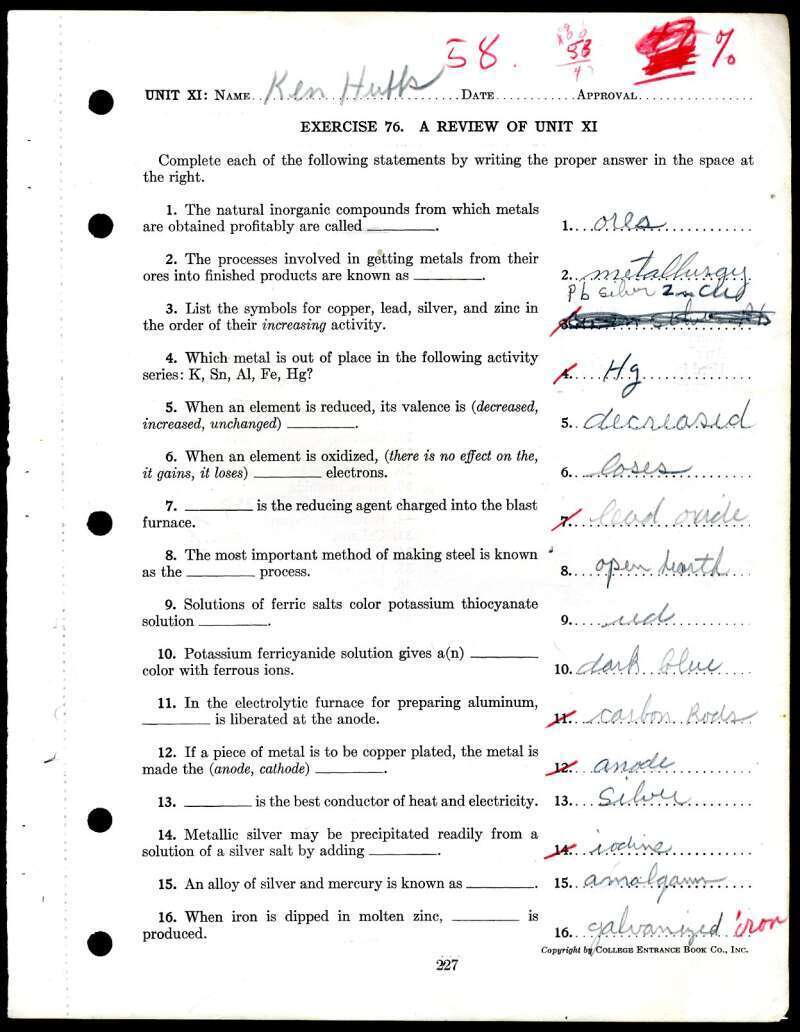 58.
53
%
UNIT XI: NAME Ken Huffs DATE APPROVAL
EXERCISE 76. A REVIEW OF UNIT XI
Complete each of the following statements by writing the proper answer in the space at
the right.
1. The natural inorganic compounds from which metals
are obtained profitably are called ________. 1. ores
2. The processes involved in getting metals from their
ores into finished products are known as ________. 2. metallurgy
Pb silver Zn
3. List the symbols for copper, lead, silver, and zinc in
the order of their increasing activity.
4. Which metal is out of place in the following activity
series: K, Sn, Al, Fe, Hg? 4. Hg
5. When an element is reduced, its valence is (decreased,
increased, unchanged) ________. 5. decreased
6. When an element is oxidized, (there is no effect on the,
it gains, it loses) ________ electrons. 6. loses
7. ________ is the reducing agent charged into the blast
furnace. 7. lead oxide
8. The most important method of making steel is known
as the ________ process. 8. open hearth
9. Solutions of ferric salts color potassium thiocyanate
solution ________. 9. red
10. Potassium ferricyanide solution gives a(n) ________
color with ferrous ions. 10. dark blue
11. In the electrolytic furnace for preparing aluminum,
________ is liberated at the anode. 11. carbon Rods
12. If a piece of metal is to be copper plated, the metal is
made the (anode, cathode) ________. 12. anode
13. ________ is the best conductor of heat and electricity. 13. Silver
14. Metallic silver may be precipitated readily from a
solution of a silver salt by adding ________. 14. iodine
15. An alloy of silver and mercury is known as ________. 15. amalgam
16. When iron is dipped in molten zinc, ________ is
produced. 16. galvanized iron
Copyright by COLLEGE ENTRANCE BOOK CO., INC.
227